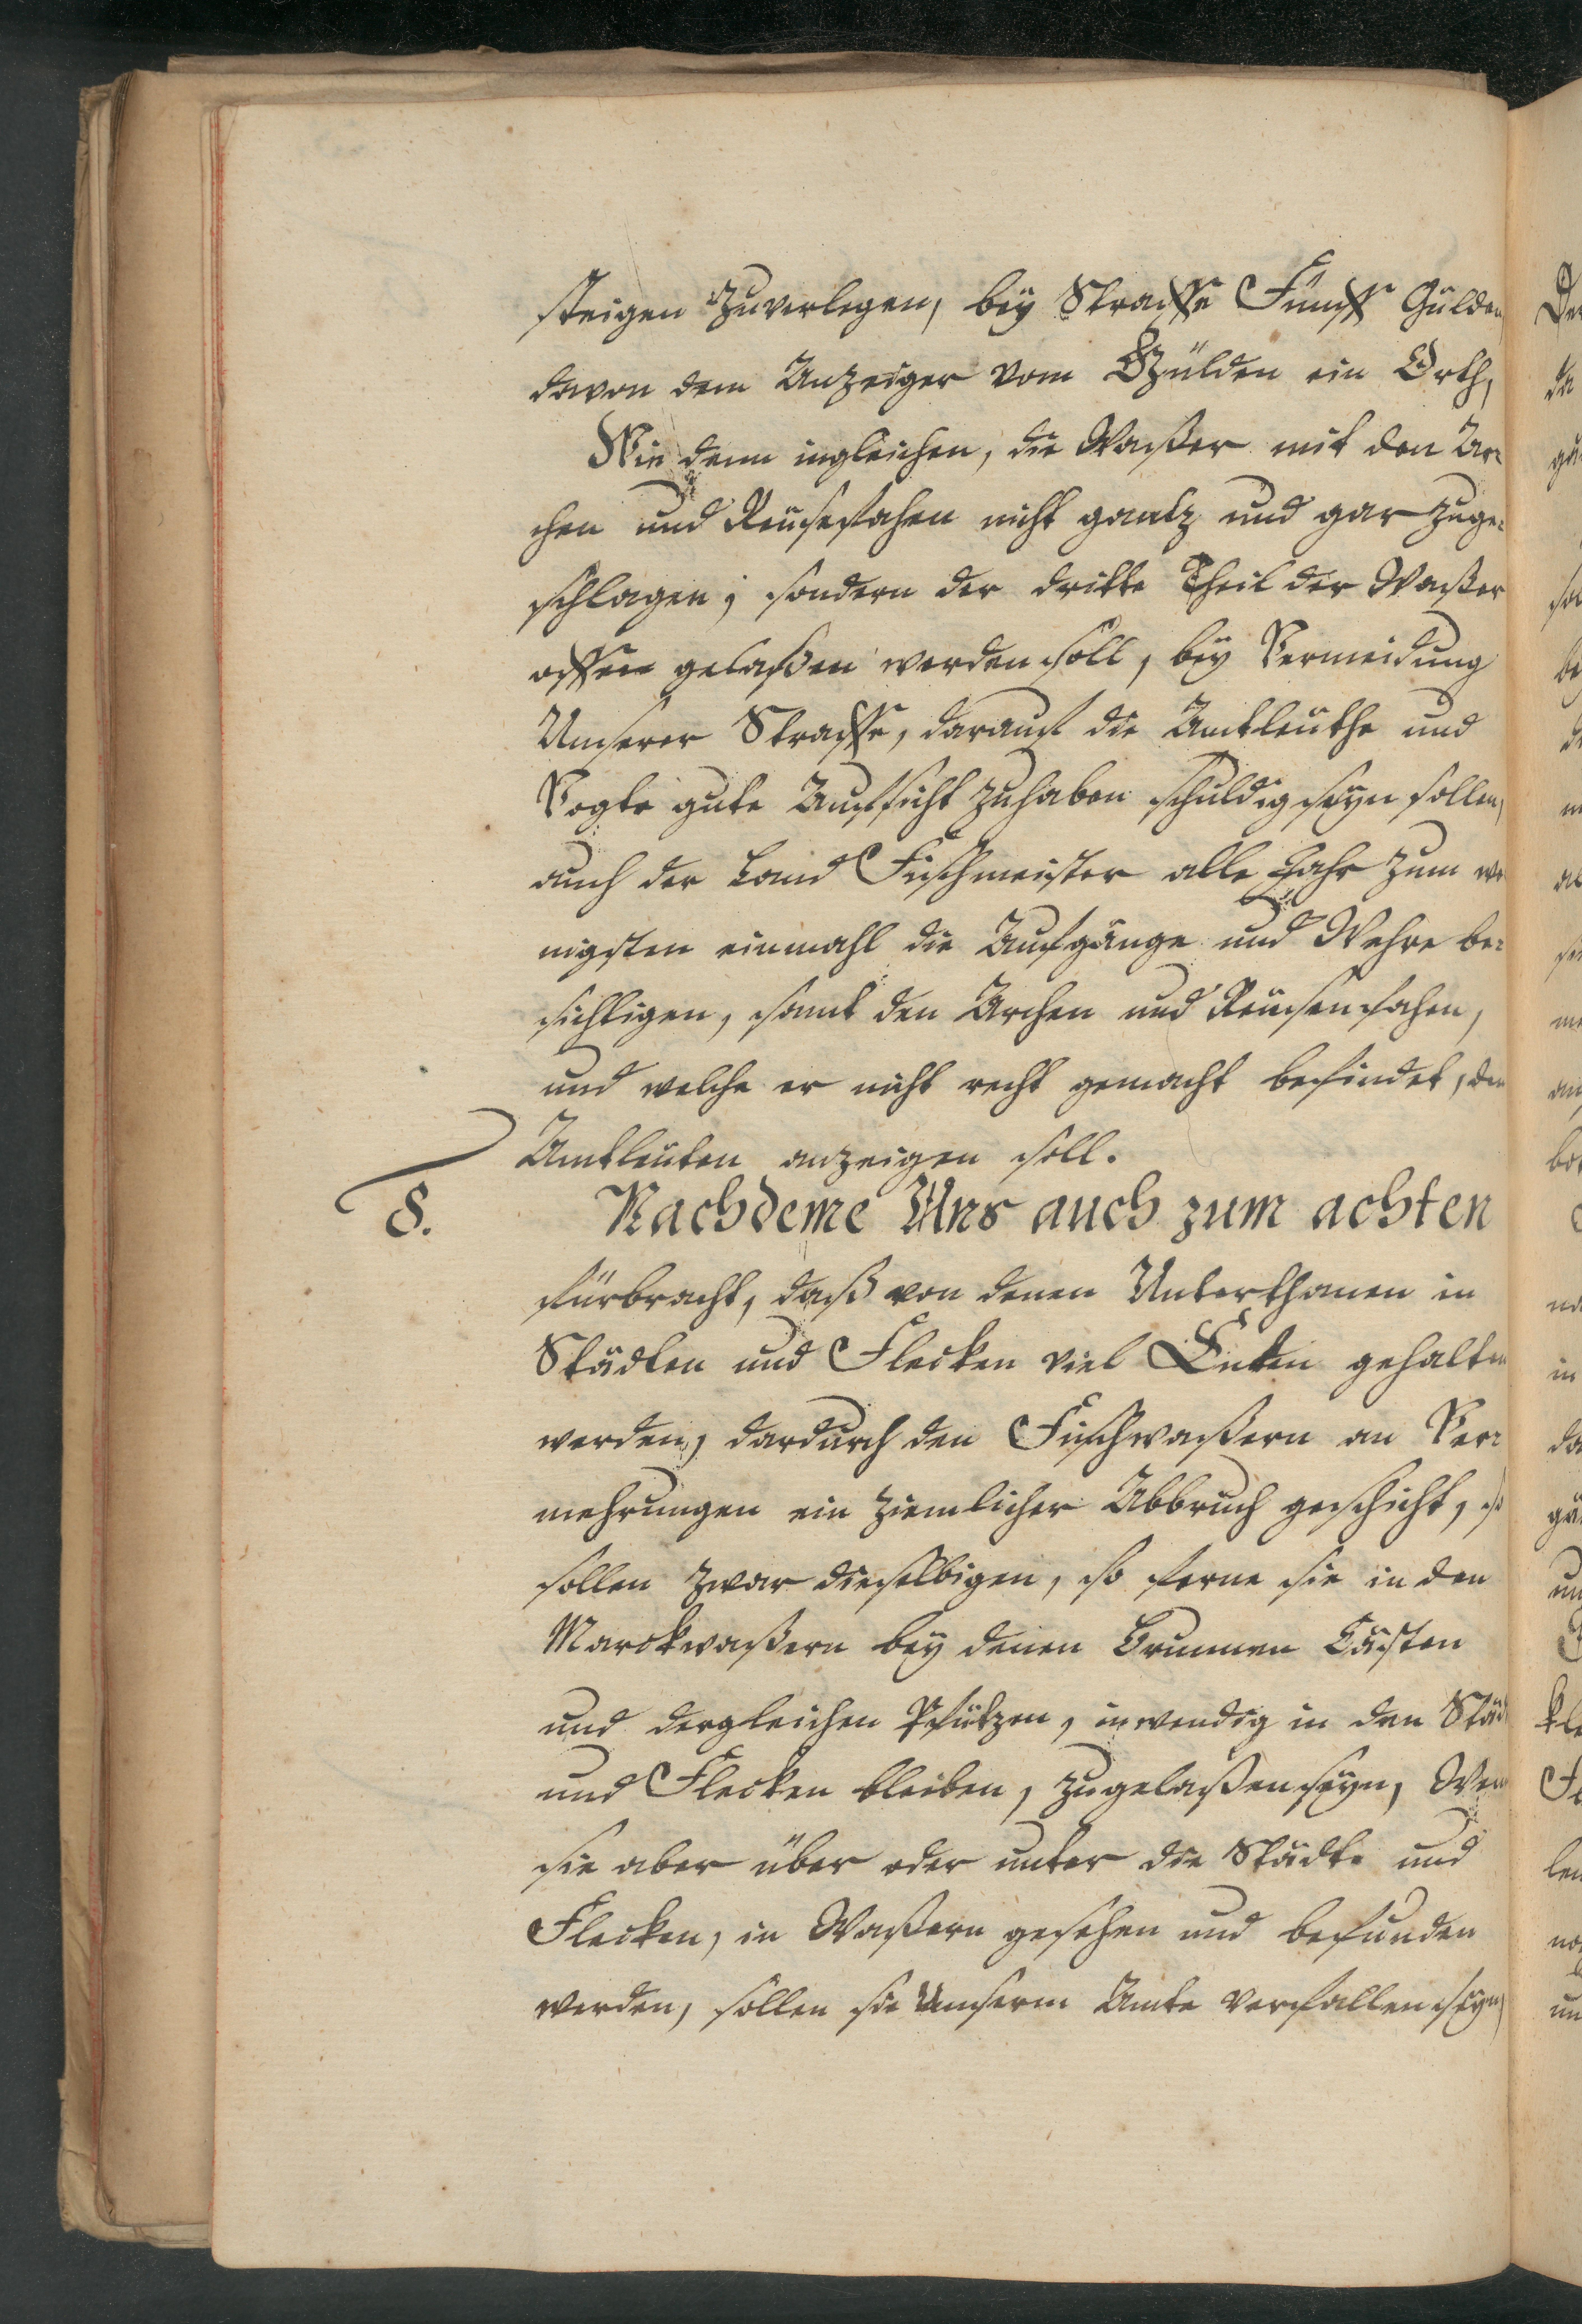 steigen zuverlegen, bey Straffe Fünff Gülden
davon dem Anzeiger vom Gülden ein Orth,
Wie denn ingleichen, die Waßer mit den Ar-
chen und Reusefahen nicht gantz und gar zuge-
schlagen; sondern der dritte Theil der Waßer
offen gelaßen werden soll, bey Vermeidung
Unserer Straffe, darauf die Amtleuthe und
Vogte gute Aufsicht zuhaben schuldig seyn sollen,
auch der Land Fischmeister alle Jahr zum we-
nigsten einmahl die Aufgänge und Wehre be-
sichtigen, samt den Archen und Reusenfahen,
und welche er nicht recht gemacht befindet, den
Amtleuten anzeigen soll.
8. Nachdeme Uns auch zum achten
fürbracht, daß von denen Unterthanen in
Städten und Flecken viel Enten gehalten
werden, dardurch den Fischwaßern an Ver-
mehrungen ein ziemlicher Abbruch geschicht, so
sollen zwar dieselbigen, so ferne sie in den
Marckwaßern bey denen Brunnen Casten
und dergleichen Pfützen, inwendig in den Städ
und Flecken bleiben, zugelaßen seyn, Wenn
sie aber über oder unter die Städte und
Flecken, in Waßern gesehen und befunden
werden, sollen sie Unserm Amte verfallen seyn,